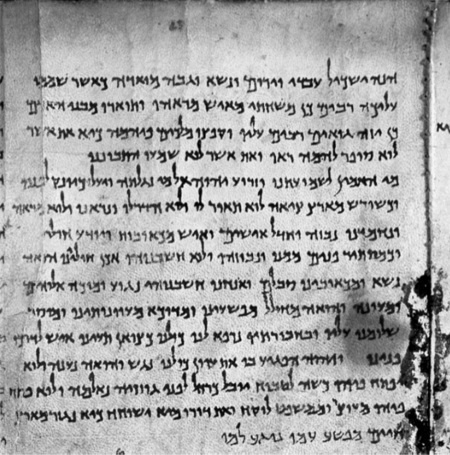 הנה ישכיל עבדי וירום ונשא וגבה מואדה כאשר שממו
עליכה רבים כן משחתי מאיש מראהו ותוארו מבני האדם
כן יזה גואים רבים עליו וקפצו מלכים פיהמה כיא את אשר
לוא סופר להמה ראו ואת אשר לוא שמעו התבוננו
מי האמין לשמועתנו וזרוע יהוה אל מי נגלתה ויעל כיונק לפניו
וכשורש מארץ ציה לוא תואר לו ולוא הדר לו ונראנו ולוא מראה
ונחמדנו נבזה וחדל אישים ואיש מכאובות ויודע חולי
וכמסתר פנים ממנו ונבוזהו ולוא חשבנוהו אכן חוליינו הואה
נשא ומכאובינו סבלם ואנחנו חשבנוהו נגוע ומוכה אלוהים
ומעונה והואה מחולל מפשעינו ומדוכא מעוונותינו ומוסר
שלומנו עליו ובחבורתיו נרפא לנו כולנו כצואן תעינו איש לדרכו
פנינו ויהוה הפגיע בו את עוון כולנו נגש והואה נענה ולוא
יפתח פיהו כשה לטבוח יובל כרחל לפני גוזזיה נאלמה ולוא פתח
פיהו מעוצר וממשפט לוקח ואת דורו מיא ישוחח כיא נגזר מארץ
חיים מפשע עמו נוגע למו